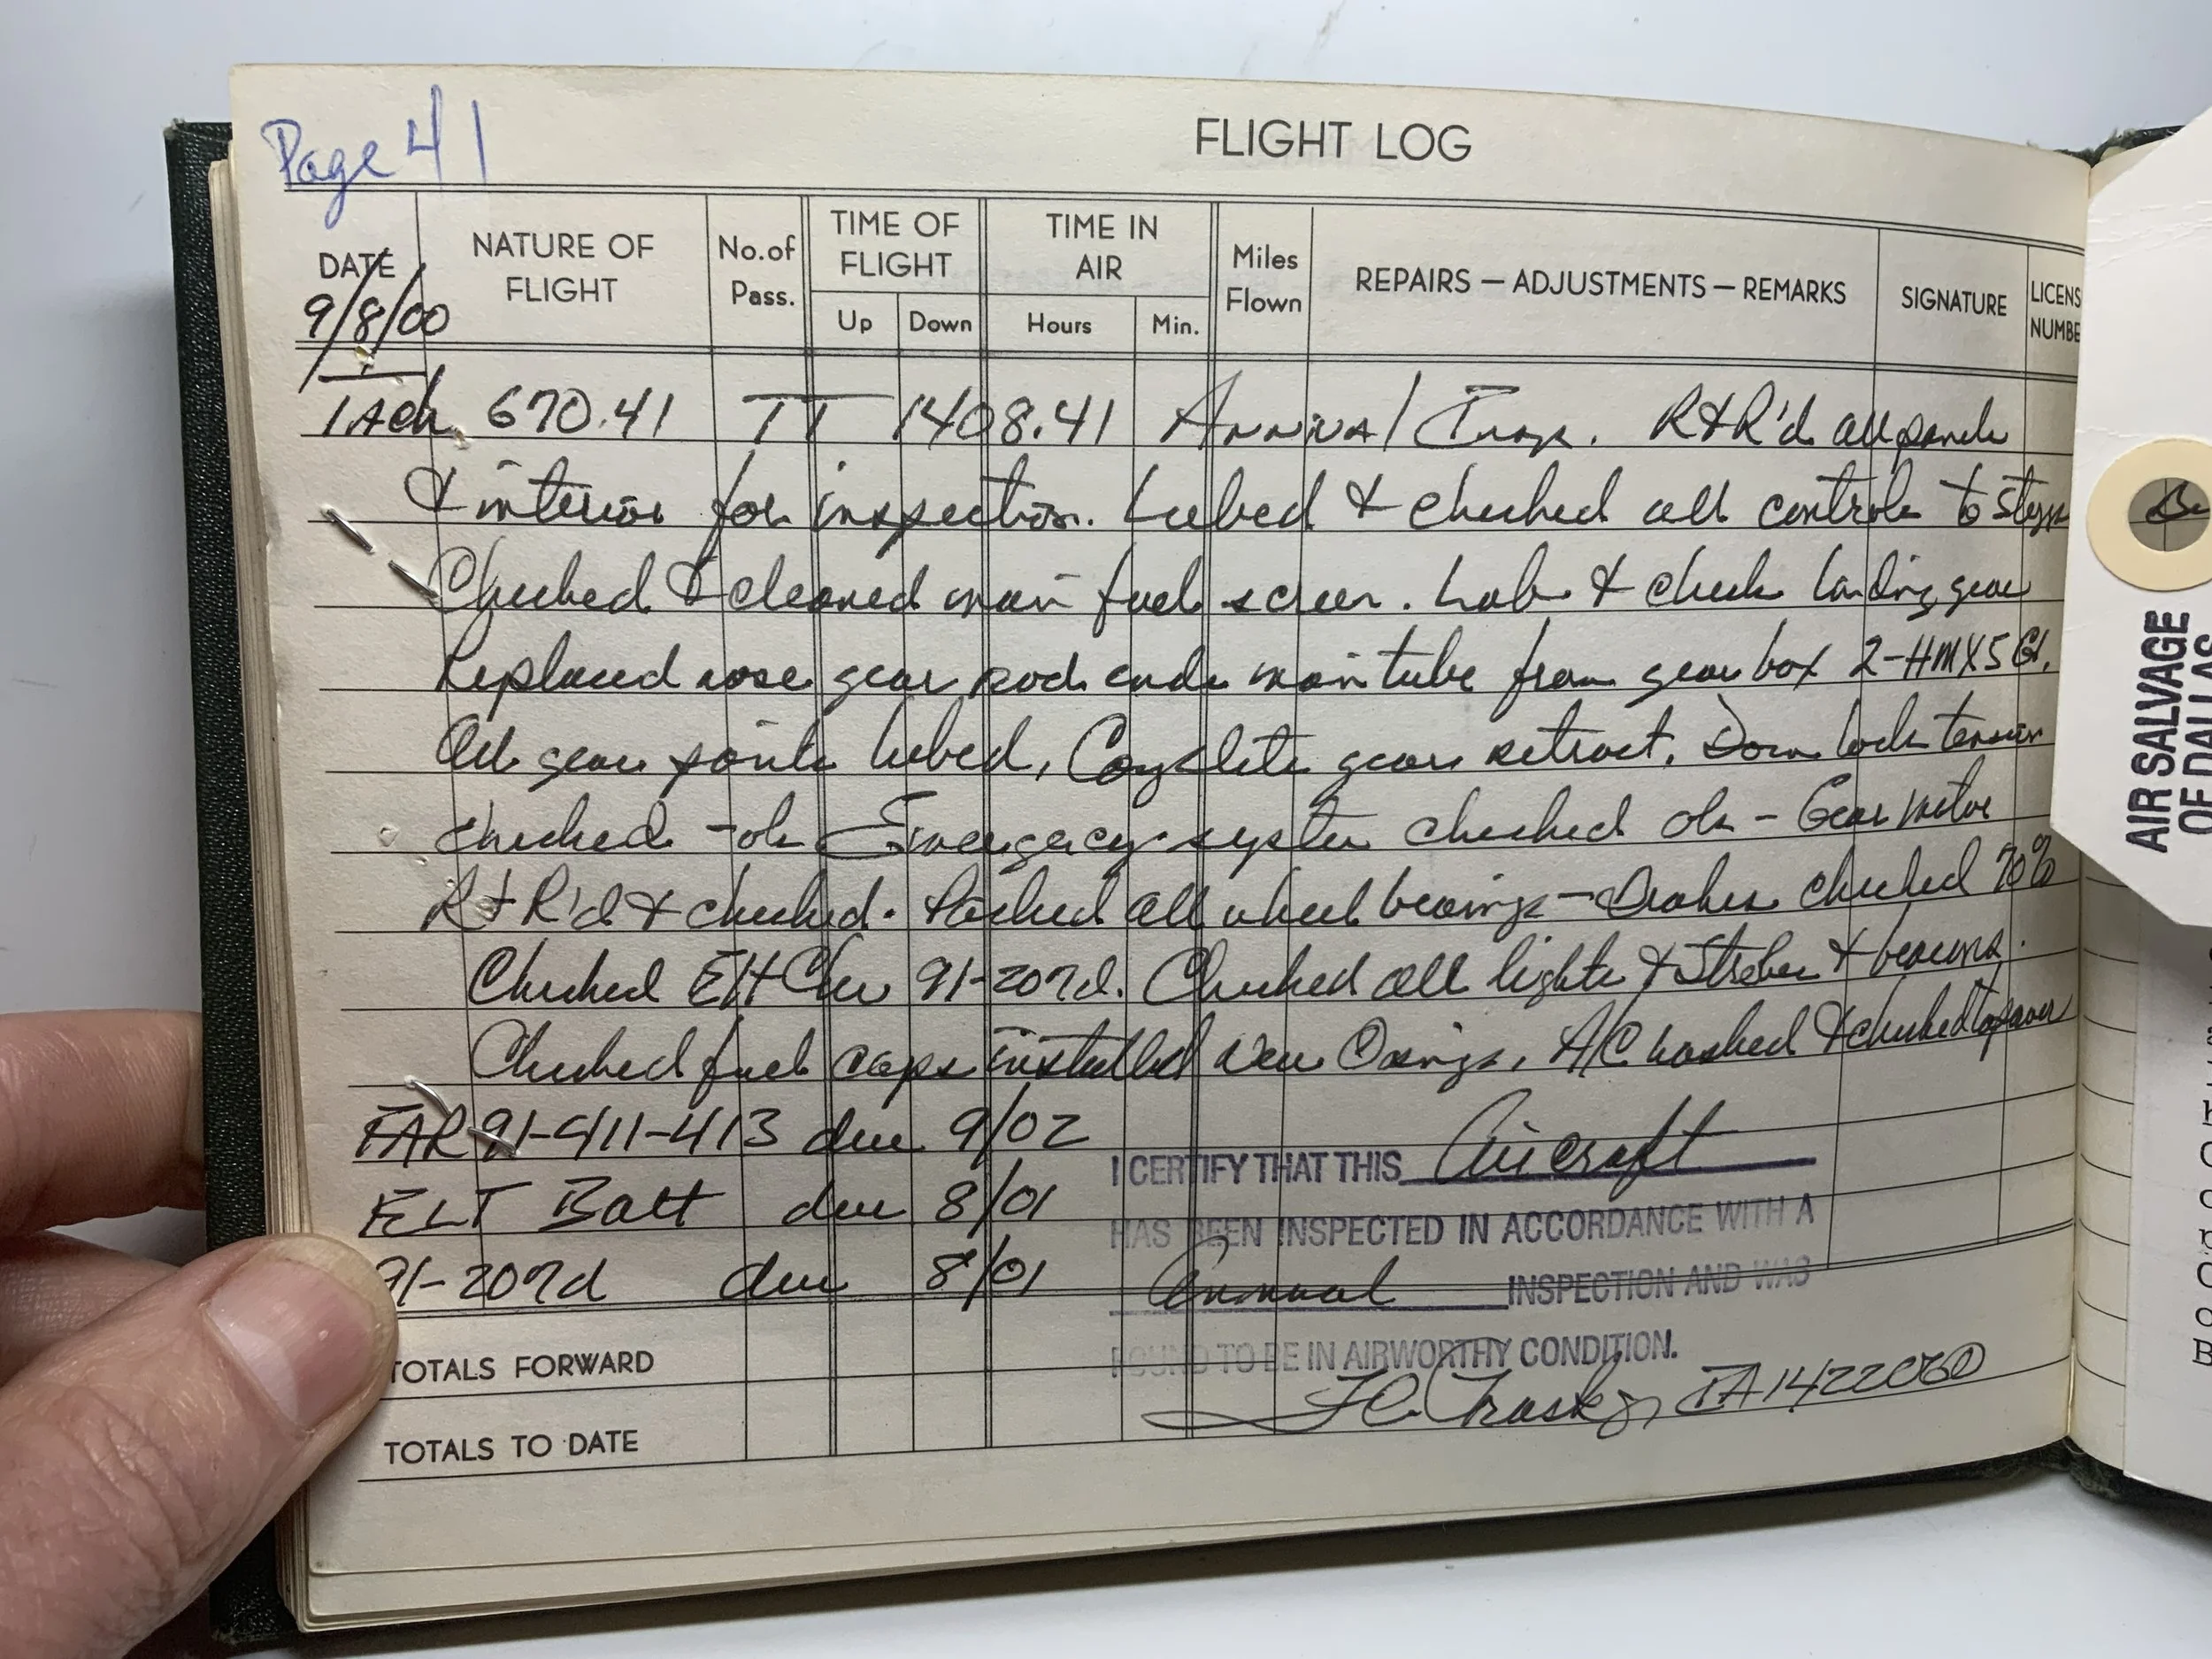 Page 41
FLIGHT LOG
DATE
NATURE OF FLIGHT
No. of Pass.
TIME OF FLIGHT
Up Down
TIME IN AIR
Hours Min.
Miles Flown
REPAIRS — ADJUSTMENTS — REMARKS
SIGNATURE
LICENS
NUMBE
9/8/00
TAch 670.41 TT 1408.41 Annual Insp. R&R'd all panels
& interior for inspection. Lubed & checked all controls to stops
Checked & cleaned main fuel screen. Lube & check landing gear
Replaced nose gear rod ends main tube from gear box 2-HMX5
All gear points lubed, Complete gear retract. Down lock tension
checked - ok Emergency system checked ok - Gear motor
R&R'd & checked. Packed all wheel bearings - Brakes checked 70%
Checked 91-207d. Checked all lights & Strobes & beacons.
Checked fuel caps installed new Orings. A/C washed & checked
FAR 91-411-413 due 9/02
ELT Batt due 8/01
91-207d due 8/01
I CERTIFY THAT THIS Aircraft
HAS BEEN INSPECTED IN ACCORDANCE WITH A
Annual INSPECTION AND WAS
FOUND TO BE IN AIRWORTHY CONDITION.
IA 1422060
TOTALS FORWARD
TOTALS TO DATE
AIR SALVAGE
OF DALLAS